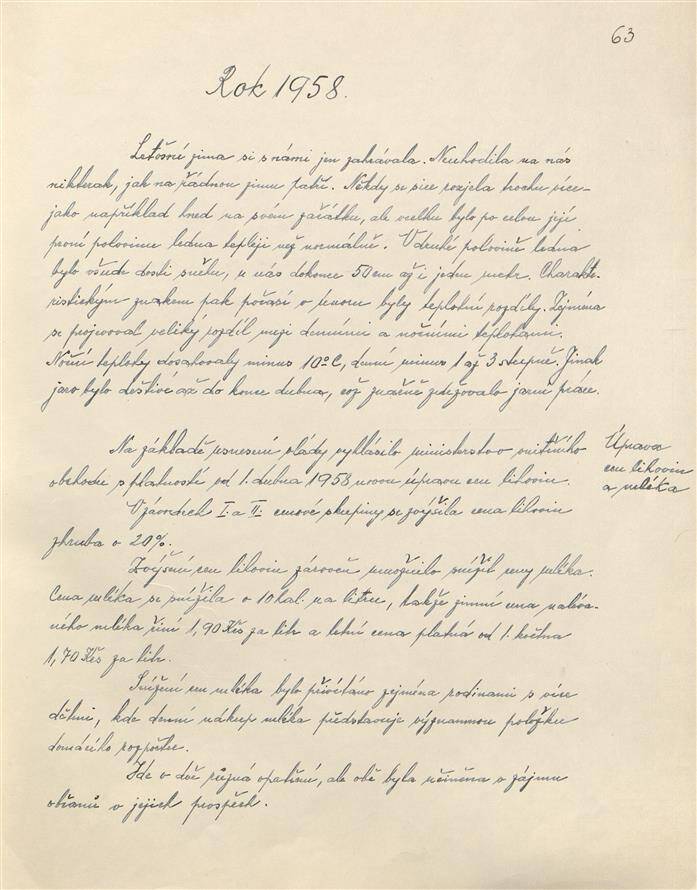 63
Rok 1958.
Letošní zima si s námi jen zahrávala. Neuhodila na nás
nikterak, jak na řádnou zimu patří. Někdy se sice rozjela trochu více -
jako například hned na svém začátku, ale vcelku bylo po celou její
první polovinu ledna tepleji než normálně. V druhé polovině ledna
bylo všude dosti sněhu, u nás dokonce 50 cm až i jeden metr. Charakte-
ristickým znakem pak počasí v únoru byly teplotní rozdíly. Zejména
se projevoval veliký rozdíl mezi denními a nočními teplotami.
Noční teploty dosahovaly minus 10°C, denní minus 1 až 3 stupně. Jinak
jaro bylo deštivé až do konce dubna, což značně zdržovalo jarní práce.
Na základě usnesení vlády vyhlásilo ministerstvo vnitřního
obchodu s platností od 1. dubna 1958 novou úpravu cen lihovin.
Úprava
cen lihovin
a mléka
V závodech I. a II. cenové skupiny se zvýšila cena lihovin
zhruba o 20%.
Zvýšení cen lihovin zároveň umožnilo snížit ceny mléka.
Cena mléka se snížila o 10 hal. na litru, takže zimní cena nalévá-
ného mléka činí 1,90 Kčs za litr a letní cena platná od 1. května
1,70 Kčs za litr.
Snížení cen mléka bylo přivítáno zejména rodinami s více
dětmi, kde denní nákup mléka představuje významnou položku
domácího rozpočtu.
Jde o dvě různá opatření, ale obě byla učiněna v zájmu
občanů v jejich prospěch.